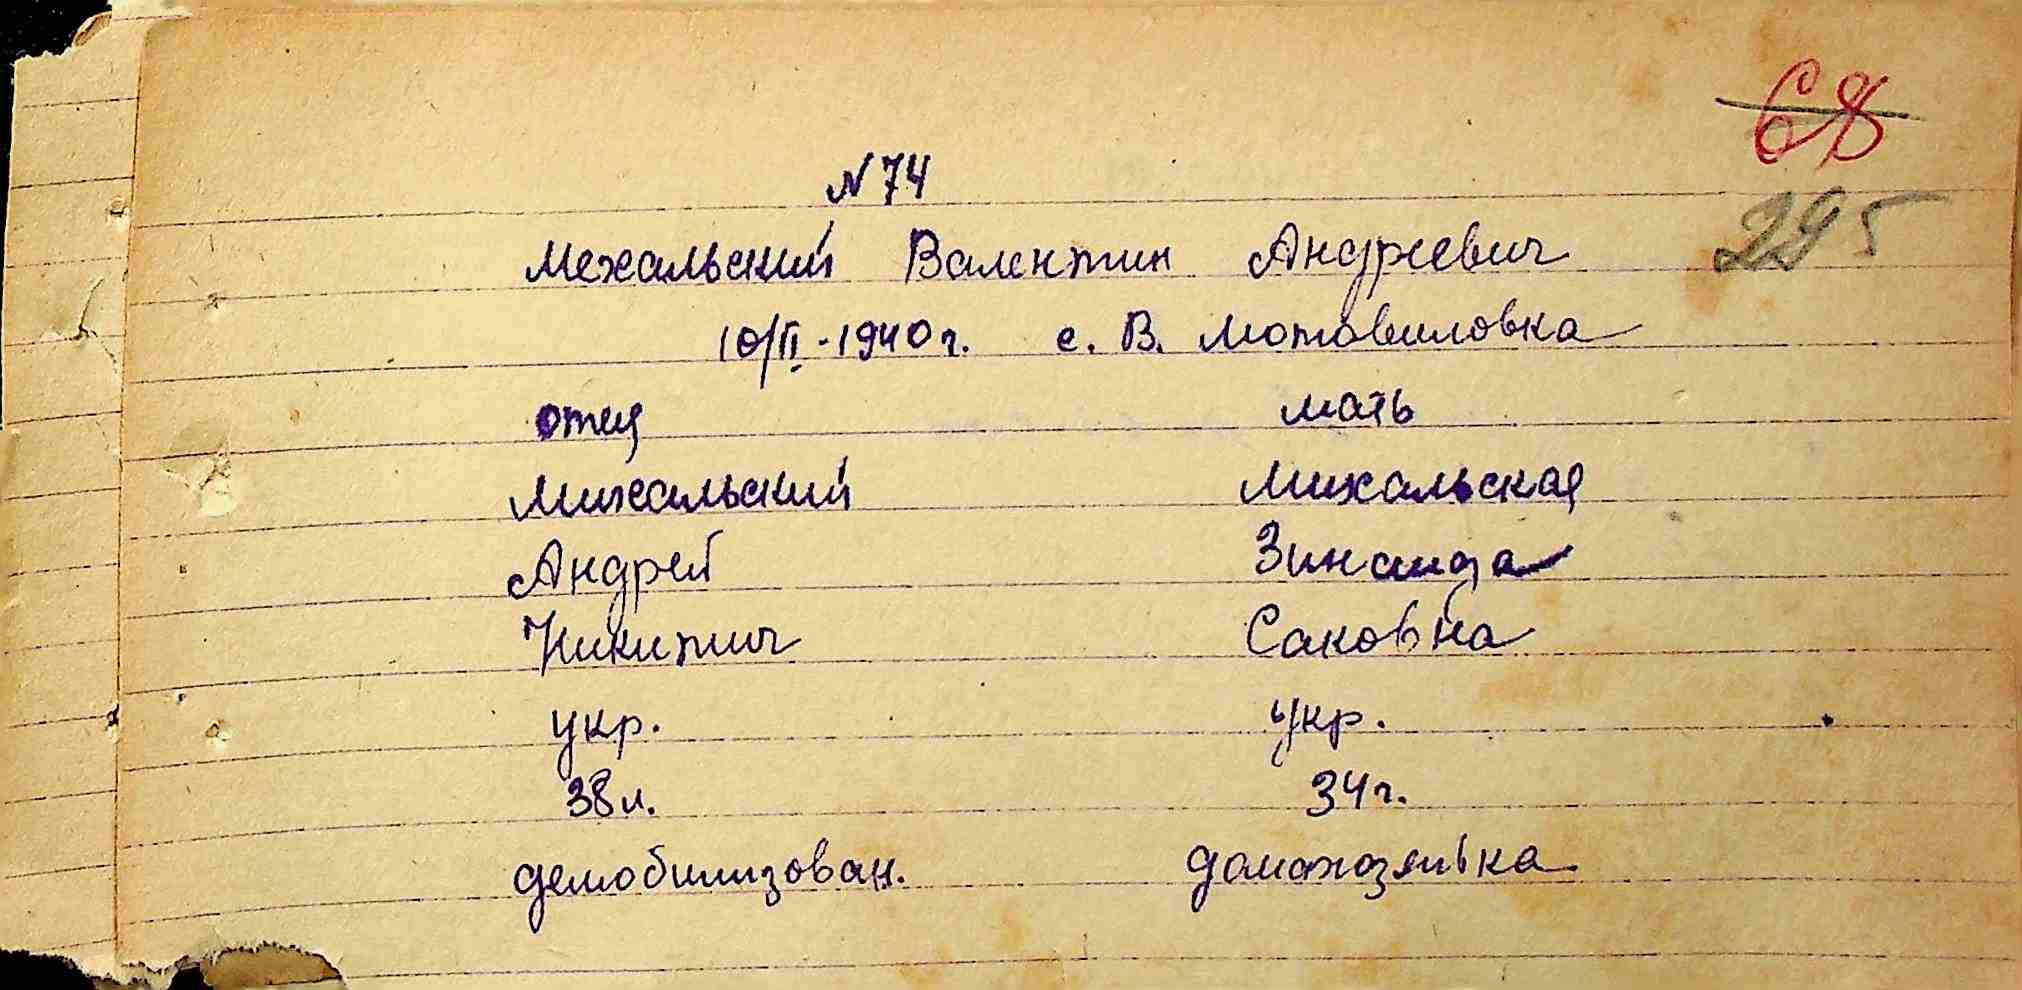 68
N 74
295
Мехальский Валентин Андреевич
10/II - 1940 г. с. В. Мотовиловка
отец мать
Михальский Михальская
Андрей Зинаида
Никитич Саковна
укр. укр.
38 л. 34 г.
демобилизован. домохозяйка